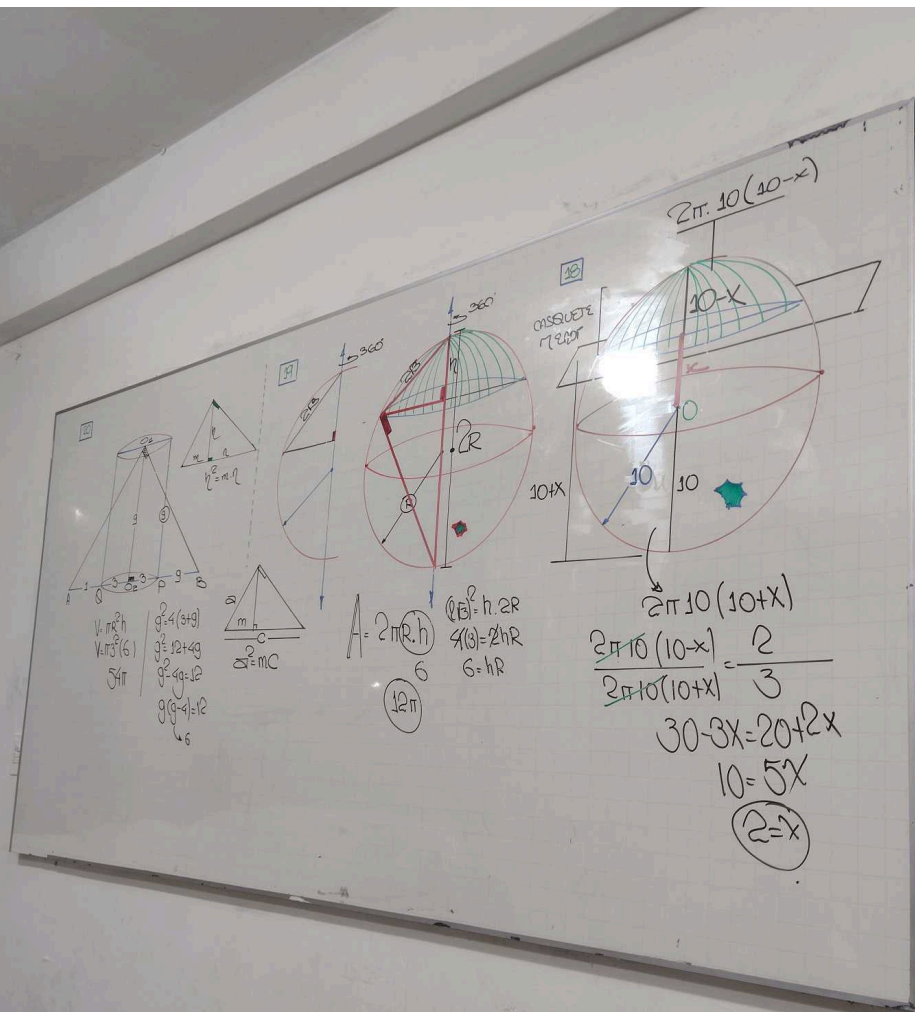 O₂
g
g
A 1 Q 3 O₁ 3 P g B
h
m n
h²=m.n
V=πR²h
V=π3²(6)
54π
g²=4(3+g)
g²=12+4g
g²-4g=12
g(g-4)=12
6
a
m h
C
a²=mC
17
360°
2√3
360°
2√3
h
2R
R
A=2π(R.h)
6
12π
(2√3)²=h.2R
4(3)=2hR
6=hR
18
CASQUETE
MENOR
2π.10(10-x)
10-x
x
O
10
10
10+x
2π10(10+x)
2π10(10-x) = 2
2π10(10+x) 3
30-3x=20+2x
10=5x
2=x